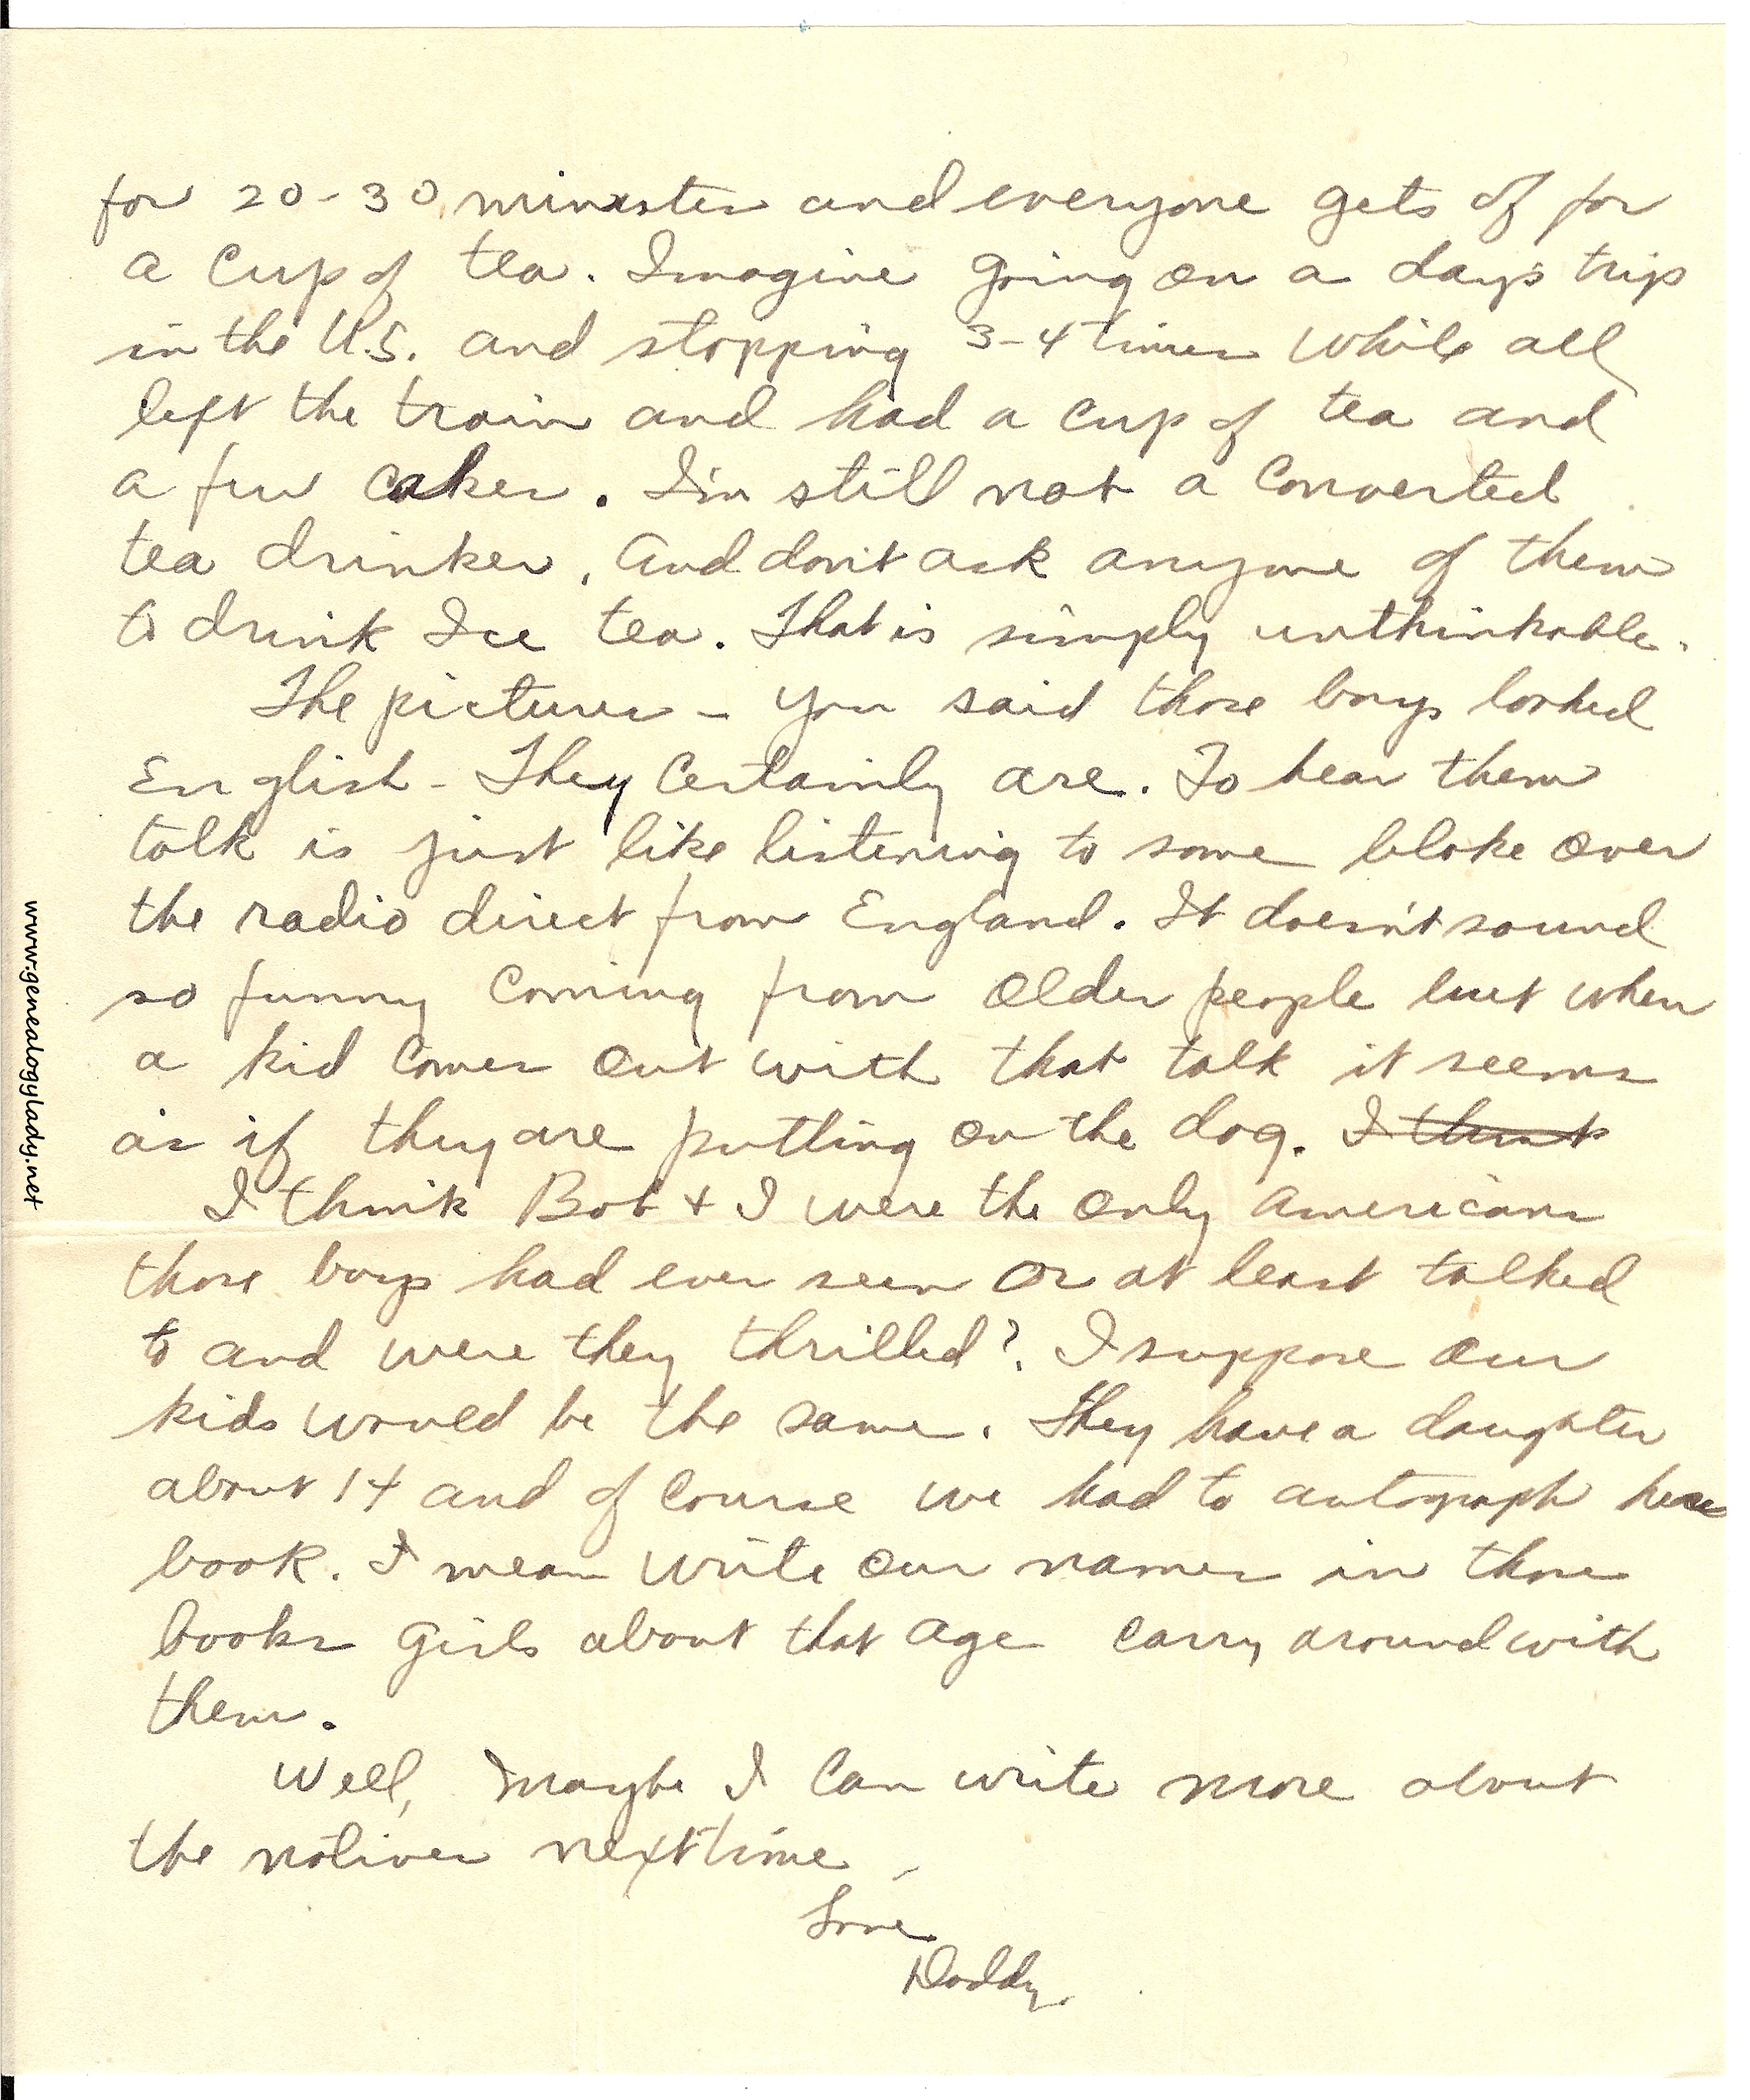 for 20-30 minutes and everyone gets of for
a cup of tea. Imagine going on a day's trip
in the U.S. and stopping 3-4 times while all
left the train and had a cup of tea and
a few cakes. I'm still not a converted
tea drinker. And don't ask anyone of them
to drink Ice tea. That is simply unthinkable.
The pictures - you said those boys looked
English - They certainly are. To hear them
talk is just like listening to some bloke over
the radio direct from England. It doesn't sound
so funny coming from older people but when
a kid comes out with that talk it seems
as if they are putting on the dog. I think
I think Bob + I were the only Americans
those boys had ever seen or at least talked
to and were they thrilled? I suppose our
kids would be the same. They have a daughter
about 14 and of course we had to autograph her
book. I mean write our names in those
books girls about that age carry around with
them.
Well, maybe I can write more about
the natives next time.
Love
Daddy.
www.genealogylady.net